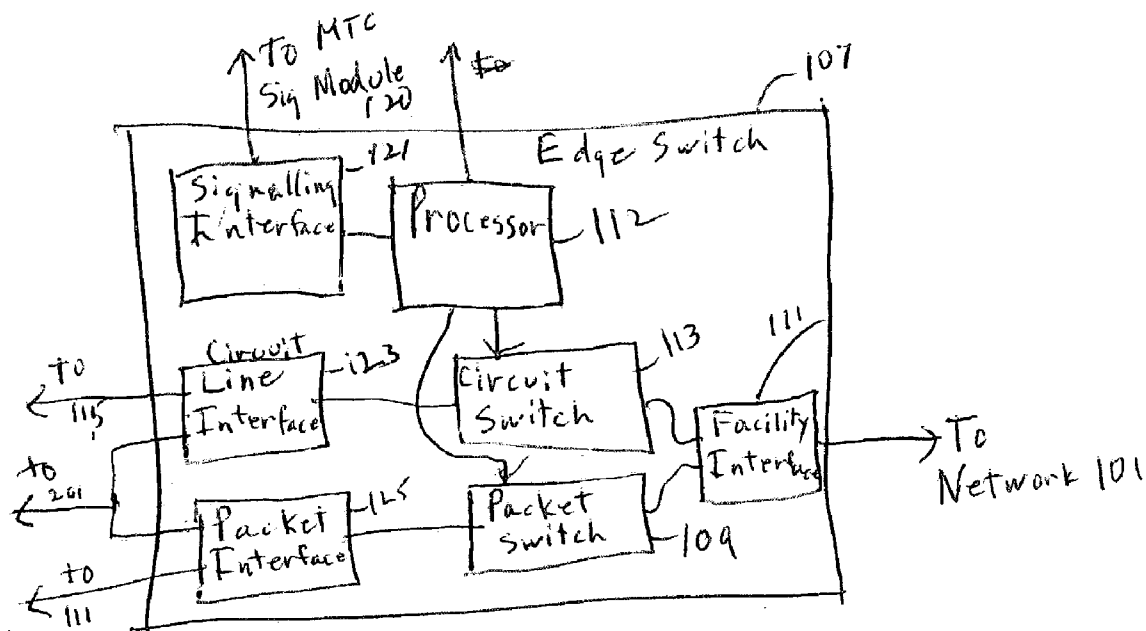 To MTC
Sig Module
120
107
Edge Switch
121
Signalling
Interface
Processor
112
Circuit
Line
Interface
123
To
115
113
Circuit
Switch
111
Facility
Interface
To
Network 101
to
201
125
Packet
Interface
Packet
Switch
109
to
111